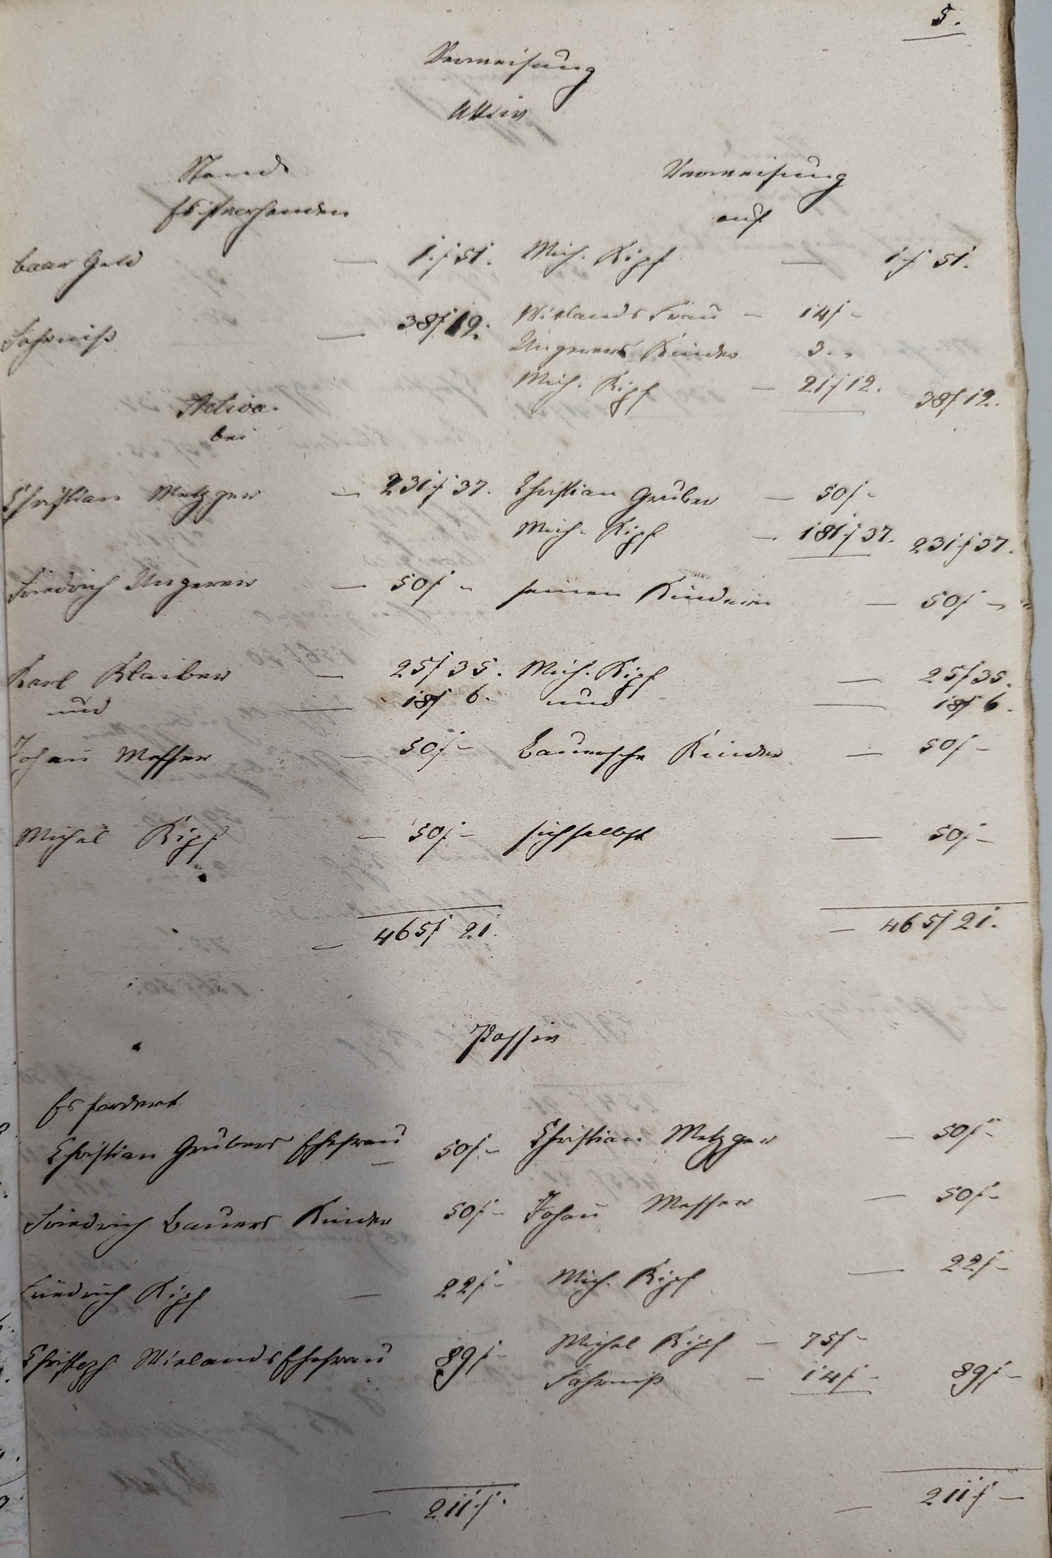 5.
Verweisung
Aktiv
Stand Verweisung
Es ist vorhanden auf
baar Geld — 1 f 51. Mich. Kipf — 1 f 51.
Fahrniß — 38 f 12. Wielands Frau — 14 f -
Ungerers Kinder 3 „
Mich. Kipf — 21 f 12. 38 f 12.
Activa.
bei
Christian Metzger — 231 f 37. Christian Gruber — 50 f -
Mich. Kipf — 181 f 37. 231 f 37.
Friedrich Ungerer — 50 f - seinen Kindern — 50 f -
Karl Klaiber — 25 f 35. Mich. Kipf — 25 f 35.
und — 18 f 6. und — 18 f 6.
Johañ Messer — 50 f - Bauersche Kinder — 50 f -
Michel Kipf — 50 f - sich selbst — 50 f -
— 465 f 21. — 465 f 21.
Passiv
Es fordert
Christian Grubers Ehefrau — 50 f - Christian Metzger — 50 f -
Friedrich Bauers Kinder 50 f - Johañ Messer — 50 f -
Friedrich Kipf — 22 f - Mich. Kipf — 22 f -
Christoph Wielands Ehefrau 89 f - Michel Kipf — 75 f -
Fahrniß — 14 f - 89 f -
— 211 f. — 211 f —